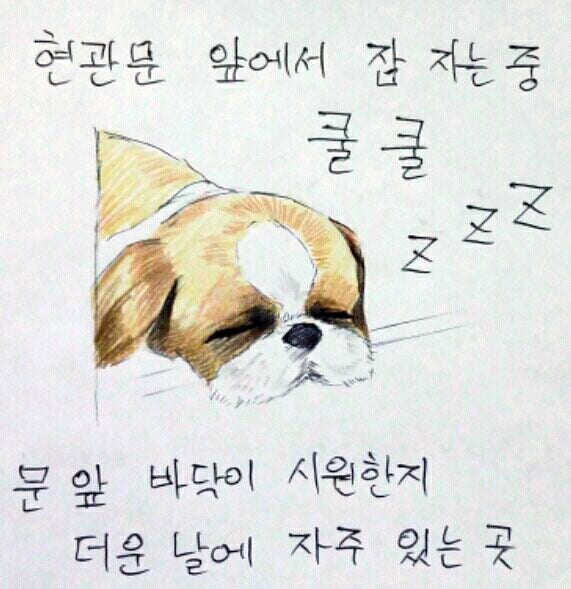 현관문 앞에서 잠 자는 중
쿨 쿨
z z z
문 앞 바닥이 시원한지
더운 날에 자주 있는 곳